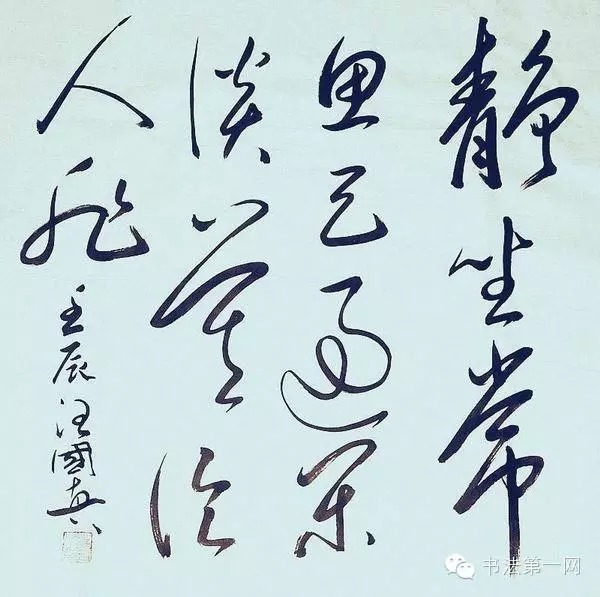 静坐常
思己过闲
谈莫论
人非
壬辰汪國真
书法第一网